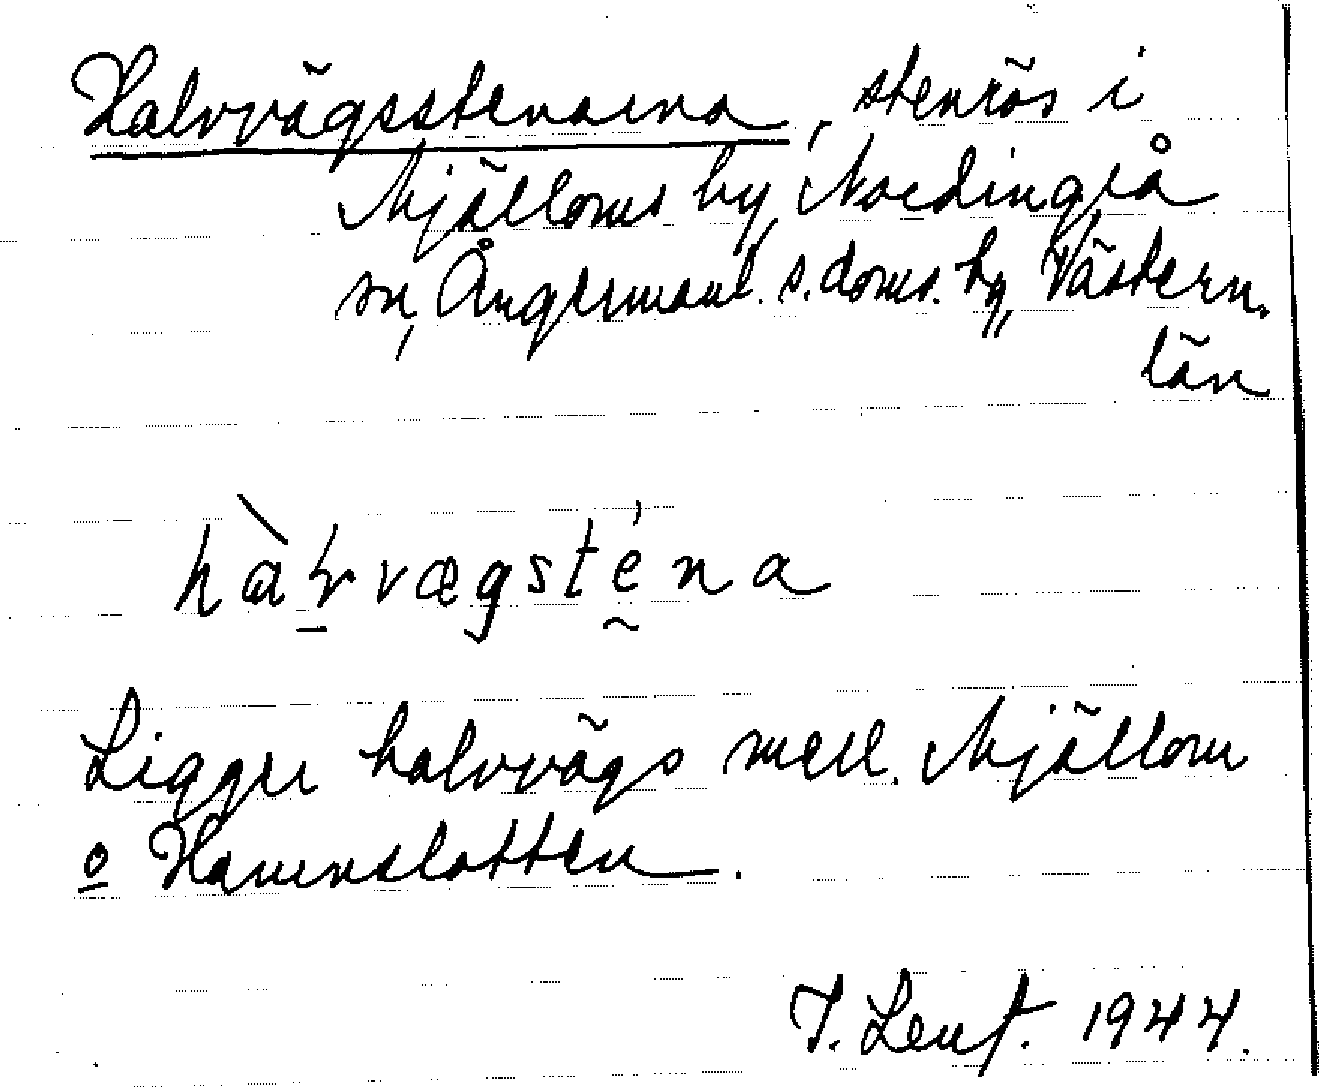 Halvvägsstenarna, stenrös i
Mjälloms by, Nordingrå
sn, Ångermanl. s. doms. hg, Västern.
län
hàl̠vægsténa
Ligger halvvägs mell. Mjällom
o Hamnslotten.
1944.